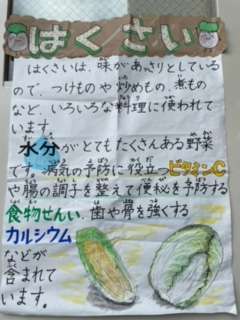 はくさい
はくさいは、味があっさりとしている
ので、つけものや炒めもの、煮もの
など、いろいろな料理に使われて
います。
水分がとてもたくさんある野菜
です。病気の予防に役立つビタミンC
や腸の調子を整えて便秘を予防する
食物せんい、歯や骨を強くする
カルシウム
などが
含まれて
います。